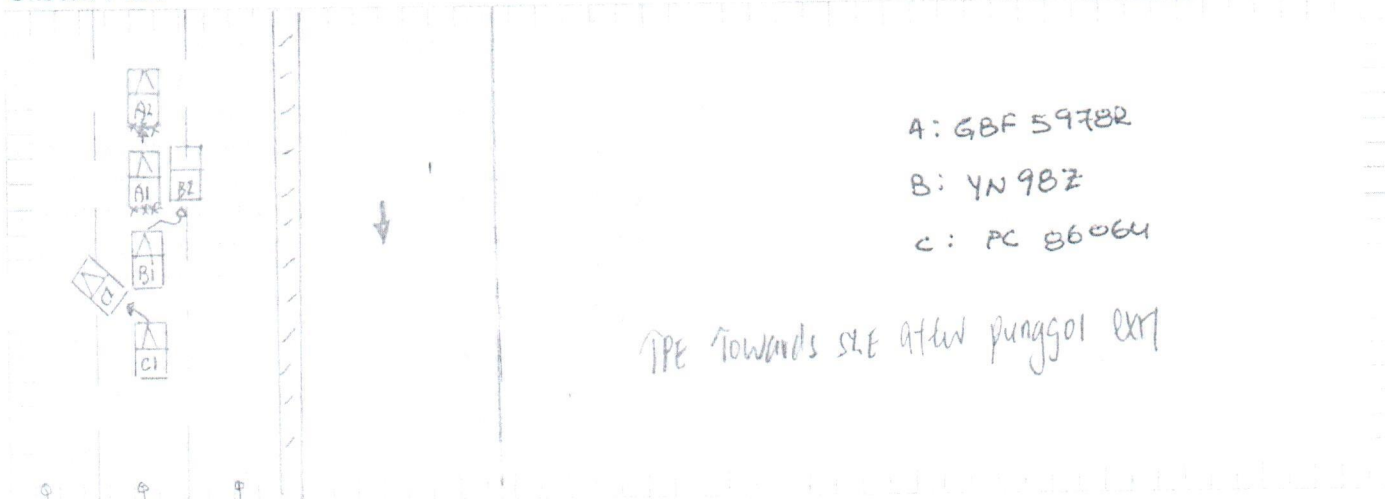 A2
A1
B2
B1
C1
A: GBF 5978R
B: YN 98Z
C: PC 8606U
TPE Towards SLE after punggol exit